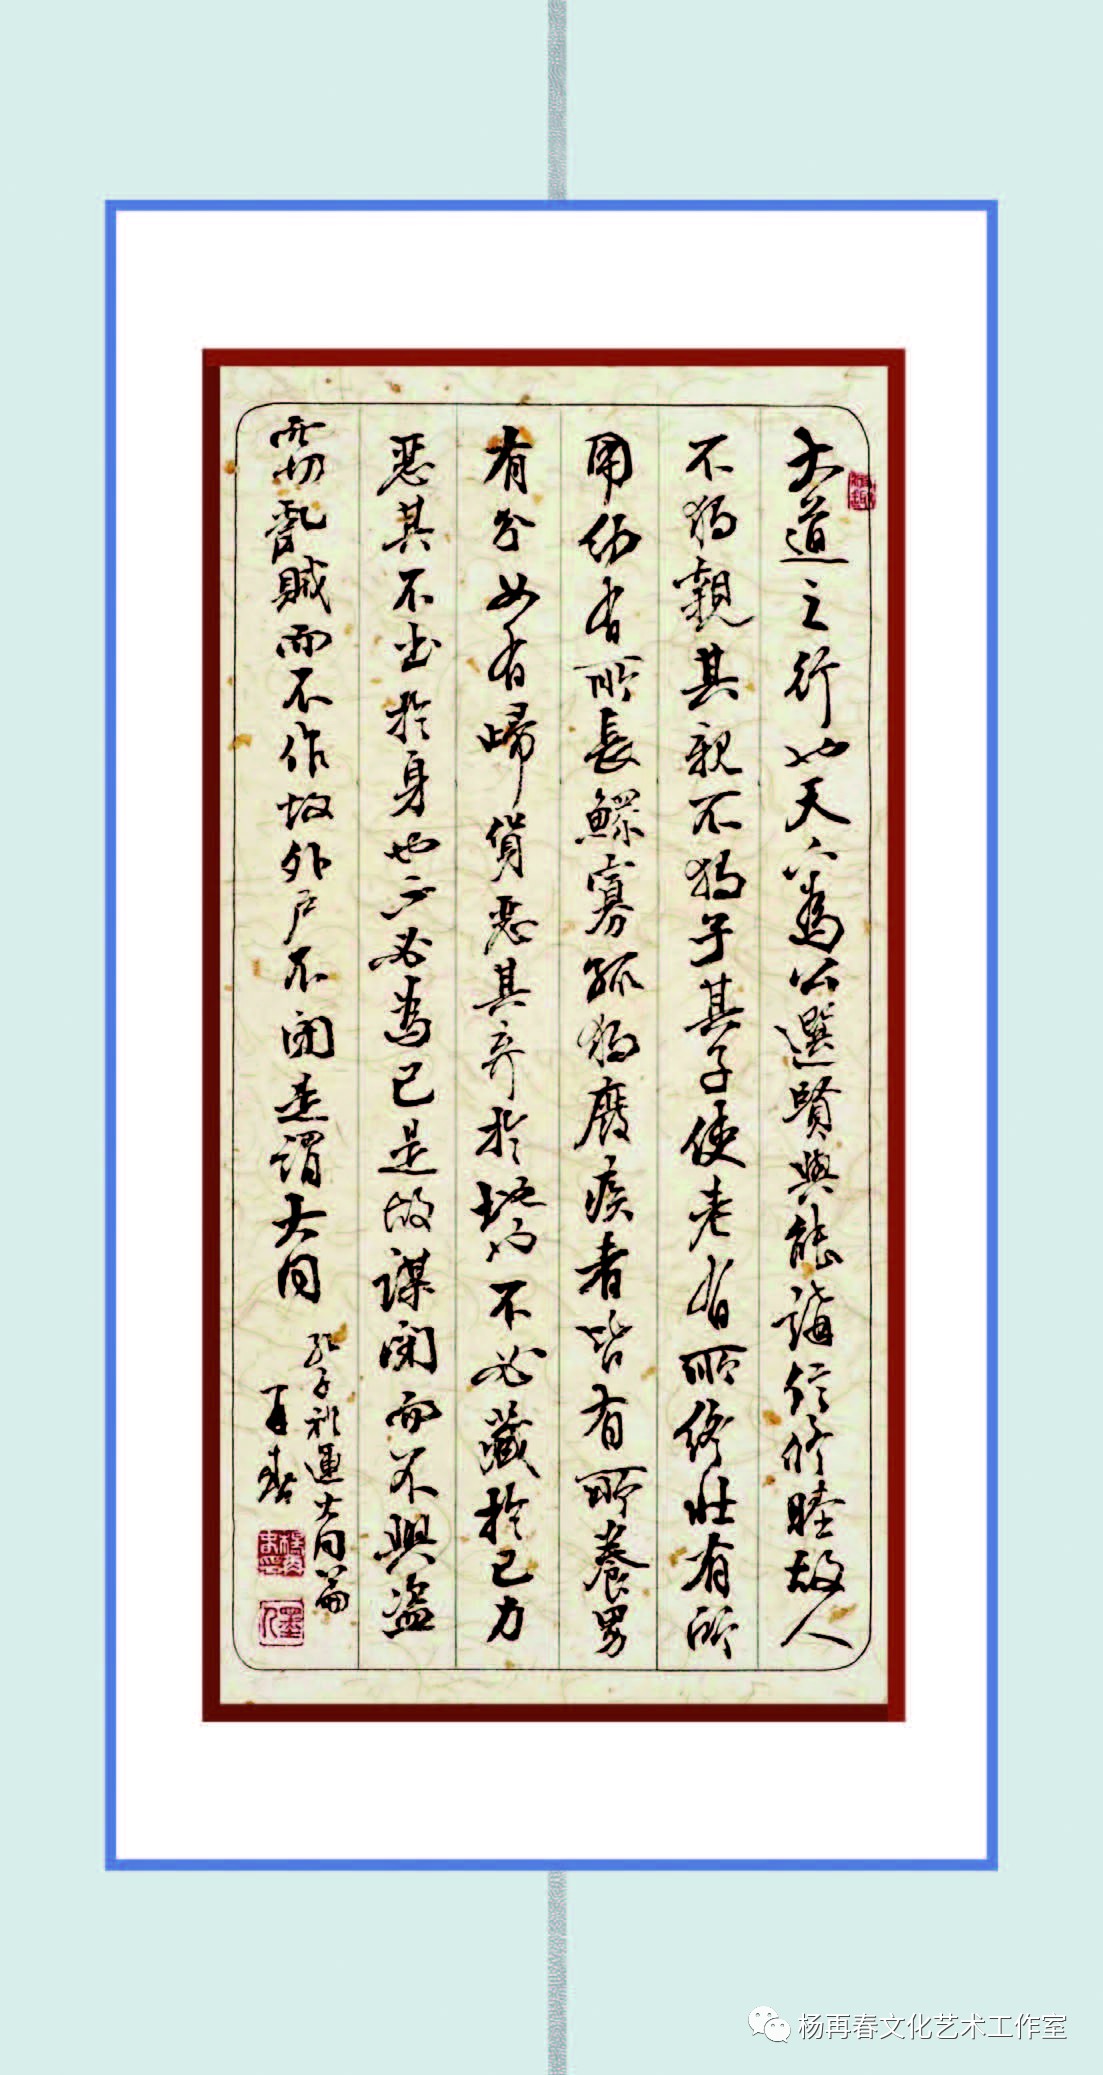 大道之行也天下為公選賢與能講信修睦故人
不獨親其親不獨子其子使老有所終壯有所
用幼有所長鰥寡孤獨廢疾者皆有所養男
有分女有歸貨惡其弃於地也不必藏於己力
惡其不出於身也不必為己是故謀閉而不興盗
竊亂賊而不作故外户不閉是謂大同
孔子礼運大同篇
再春
杨再春文化艺术工作室